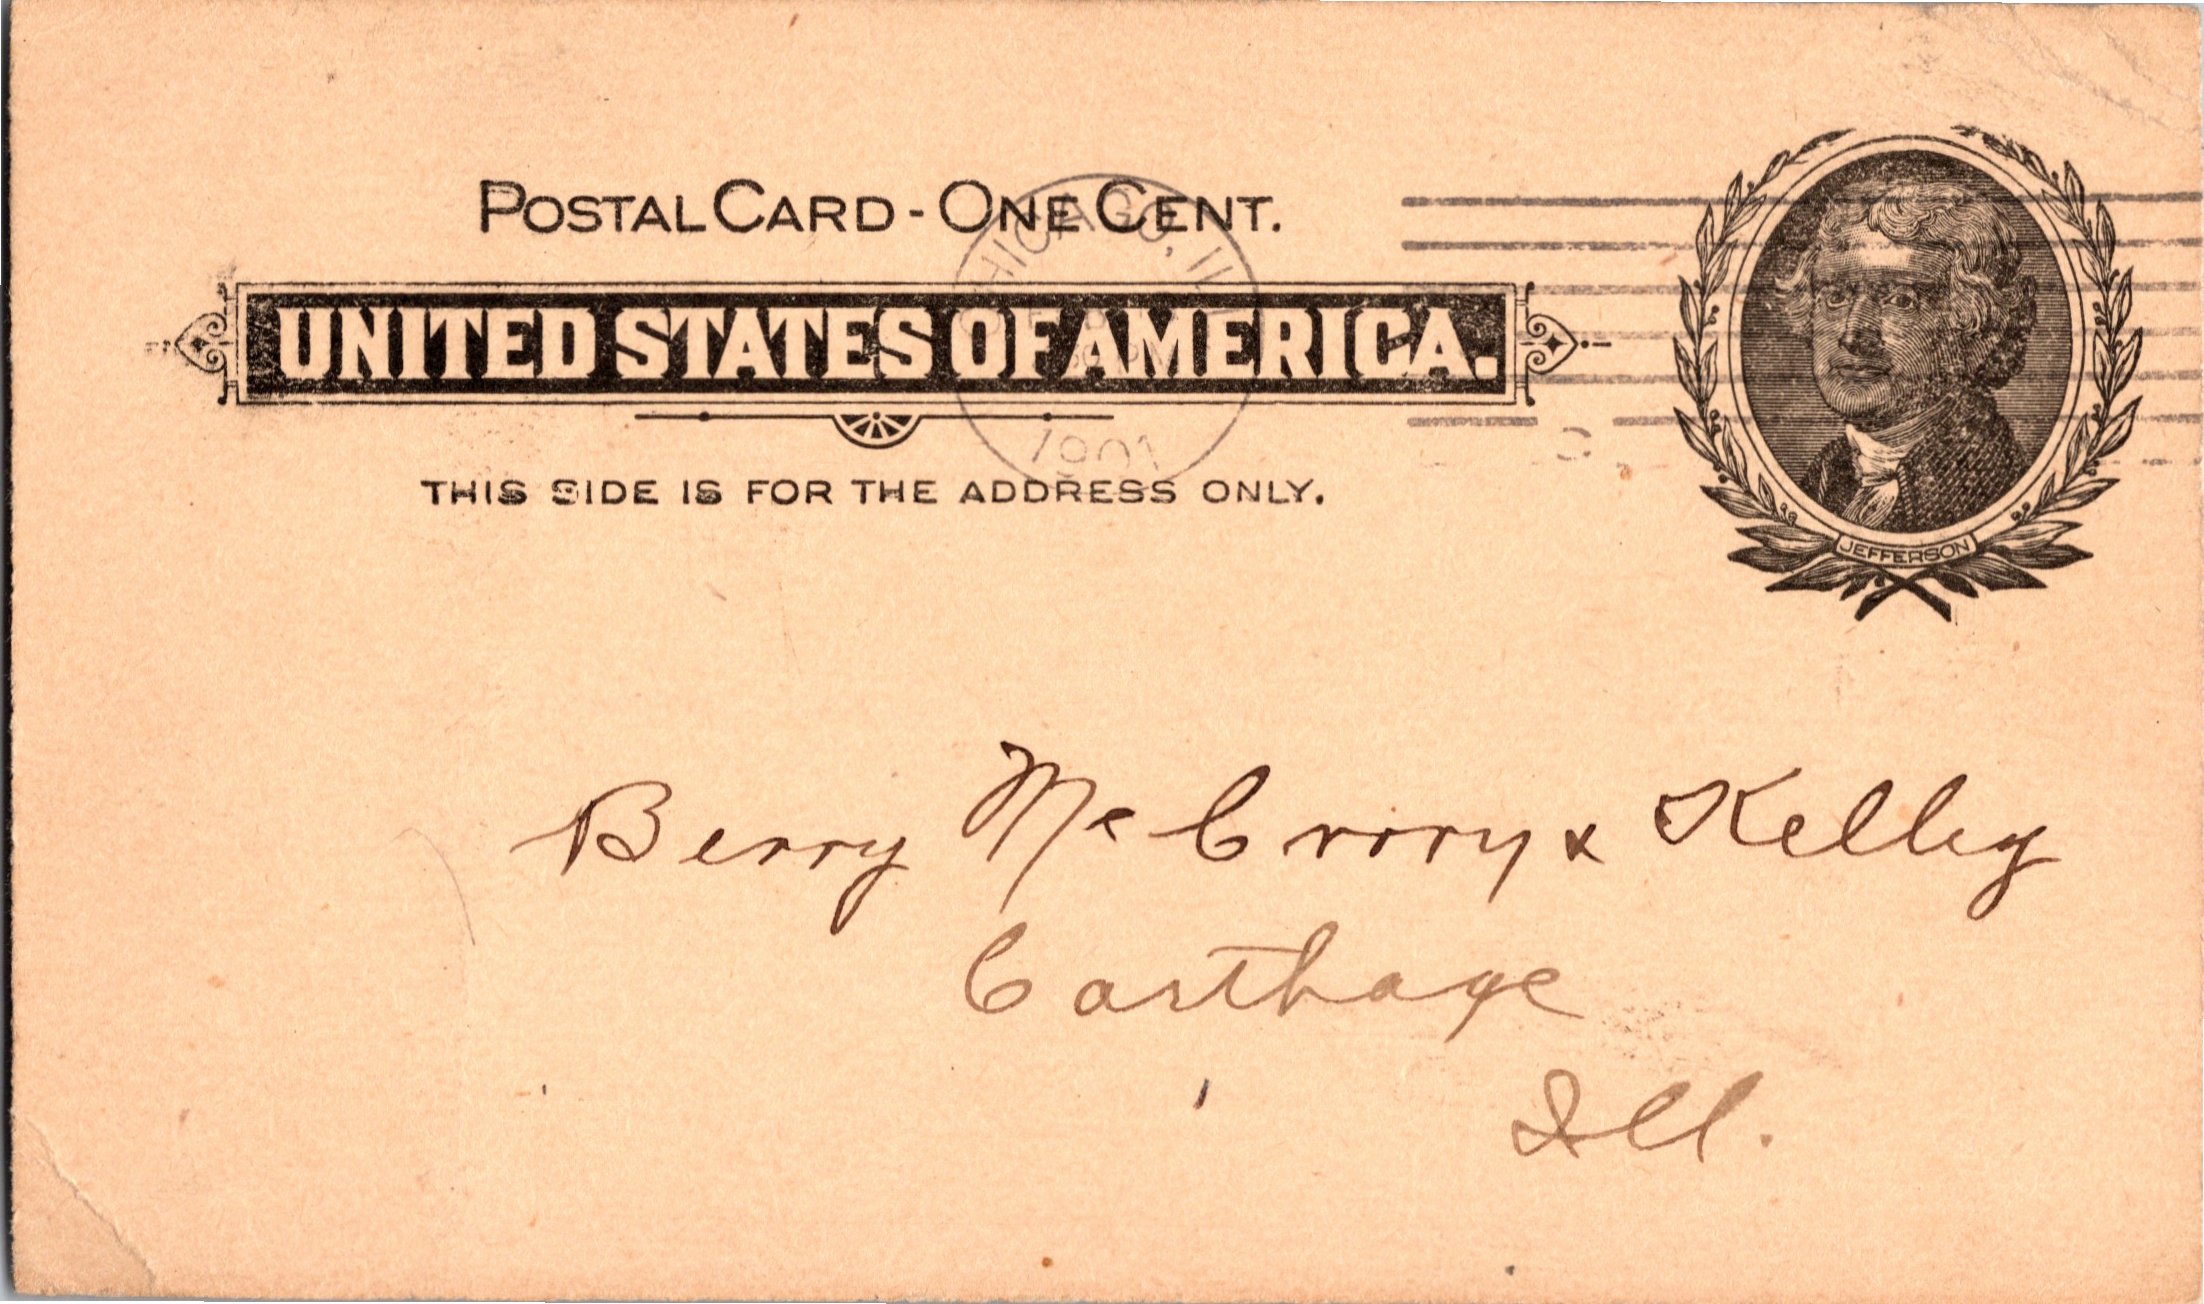 POSTAL CARD - ONE CENT.
CHICAGO, ILL
UNITED STATES OF AMERICA.
1901
THIS SIDE IS FOR THE ADDRESS ONLY.
JEFFERSON
Berry McCrory & Kelley
Carthage
Ill.